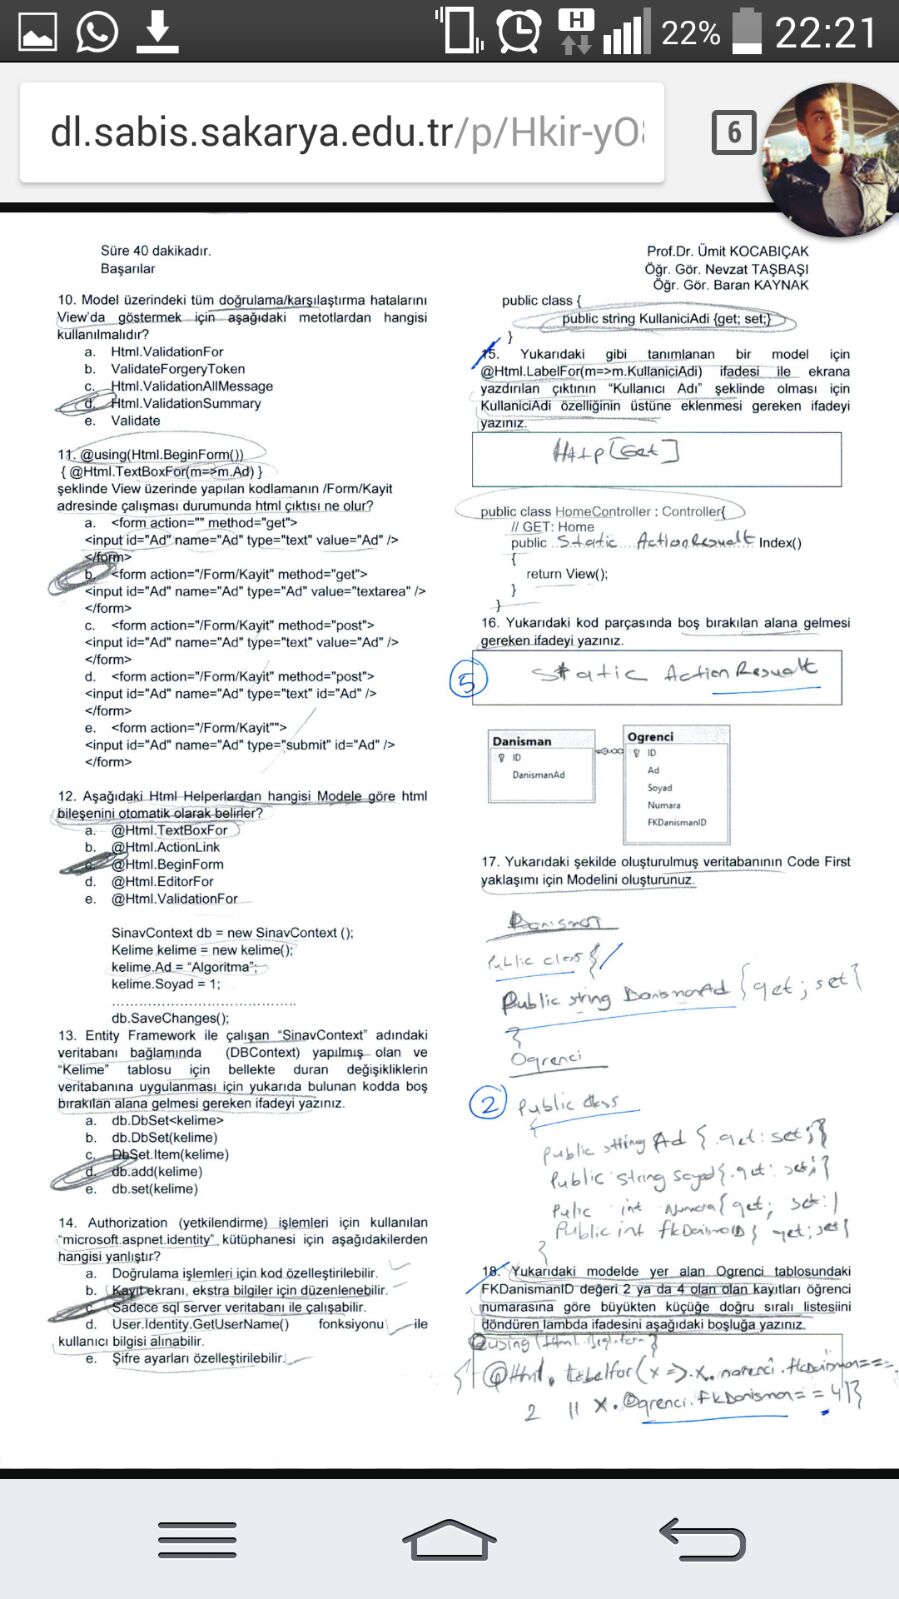 H
22%
22:21
dl.sabis.sakarya.edu.tr/p/Hkir-yO
6
Süre 40 dakikadır.
Başarılar
10. Model üzerindeki tüm doğrulama/karşılaştırma hatalarını
View'da göstermek için aşağıdaki metotlardan hangisi
kullanılmalıdır?
a. Html.ValidationFor
b. ValidateForgeryToken
c. Html.ValidationAllMessage
d. Html.ValidationSummary
e. Validate
11. @using(Html.BeginForm())
{ @Html.TextBoxFor(m=>m.Ad) }
şeklinde View üzerinde yapılan kodlamanın /Form/Kayit
adresinde çalışması durumunda html çıktısı ne olur?
a. <form action="" method="get">
<input id="Ad" name="Ad" type="text" value="Ad" />
</form>
b. <form action="/Form/Kayit" method="get">
<input id="Ad" name="Ad" type="Ad" value="textarea" />
</form>
c. <form action="/Form/Kayit" method="post">
<input id="Ad" name="Ad" type="text" value="Ad" />
</form>
d. <form action="/Form/Kayit" method="post">
<input id="Ad" name="Ad" type="text" id="Ad" />
</form>
e. <form action="/Form/Kayit"">
<input id="Ad" name="Ad" type="submit" id="Ad" />
</form>
12. Aşağıdaki Html Helperlardan hangisi Modele göre html
bileşenini otomatik olarak belirler?
a. @Html.TextBoxFor
b. @Html.ActionLink
c. @Html.BeginForm
d. @Html.EditorFor
e. @Html.ValidationFor
SinavContext db = new SinavContext ();
Kelime kelime = new kelime();
kelime.Ad = "Algoritma";
kelime.Soyad = 1;
......................................
db.SaveChanges();
13. Entity Framework ile çalışan "SinavContext" adındaki
veritabanı bağlamında (DBContext) yapılmış olan ve
"Kelime" tablosu için bellekte duran değişikliklerin
veritabanına uygulanması için yukarıda bulunan kodda boş
bırakılan alana gelmesi gereken ifadeyi yazınız.
a. db.DbSet<kelime>
b. db.DbSet(kelime)
c. DbSet.Item(kelime)
d. db.add(kelime)
e. db.set(kelime)
14. Authorization (yetkilendirme) işlemleri için kullanılan
"microsoft.aspnet.identity" kütüphanesi için aşağıdakilerden
hangisi yanlıştır?
a. Doğrulama işlemleri için kod özelleştirilebilir.
b. Kayıt ekranı, ekstra bilgiler için düzenlenebilir.
c. Sadece sql server veritabanı ile çalışabilir.
d. User.Identity.GetUserName() fonksiyonu ile
kullanıcı bilgisi alınabilir.
e. Şifre ayarları özelleştirilebilir.
Prof.Dr. Ümit KOCABIÇAK
Öğr. Gör. Nevzat TAŞBAŞI
Öğr. Gör. Baran KAYNAK
public class {
public string KullaniciAdi {get; set;}
}
15. Yukarıdaki gibi tanımlanan bir model için
@Html.LabelFor(m=>m.KullaniciAdi) ifadesi ile ekrana
yazdırılan çıktının "Kullanıcı Adı" şeklinde olması için
KullaniciAdi özelliğinin üstüne eklenmesi gereken ifadeyi
yazınız.
Http[Get]
public class HomeController : Controller{
// GET: Home
public Static ActionResualt Index()
{
return View();
}
}
16. Yukarıdaki kod parçasında boş bırakılan alana gelmesi
gereken ifadeyi yazınız.
5
Static ActionResualt
Danisman
ID
DanismanAd
Ogrenci
ID
Ad
Soyad
Numara
FKDanismanID
17. Yukarıdaki şekilde oluşturulmuş veritabanının Code First
yaklaşımı için Modelini oluşturunuz.
Danisman
Public class {
Public string DanismanAd {get; set}
}
Ogrenci
2
Public class
{
public string Ad { get; set;}
Public string Soyad{ get; set;}
Public int Numara{get; set;}
Public int fkDanismanID{ get; set{
}
18. Yukarıdaki modelde yer alan Ogrenci tablosundaki
FKDanismanID değeri 2 ya da 4 olan olan kayıtları öğrenci
numarasına göre büyükten küçüğe doğru sıralı listesini
döndüren lambda ifadesini aşağıdaki boşluğa yazınız.
@using (Html.
{ @Html. Labelfor(x => x. fkDanisman==
2 || x.Ogrenci.FkDanisman== 4)}